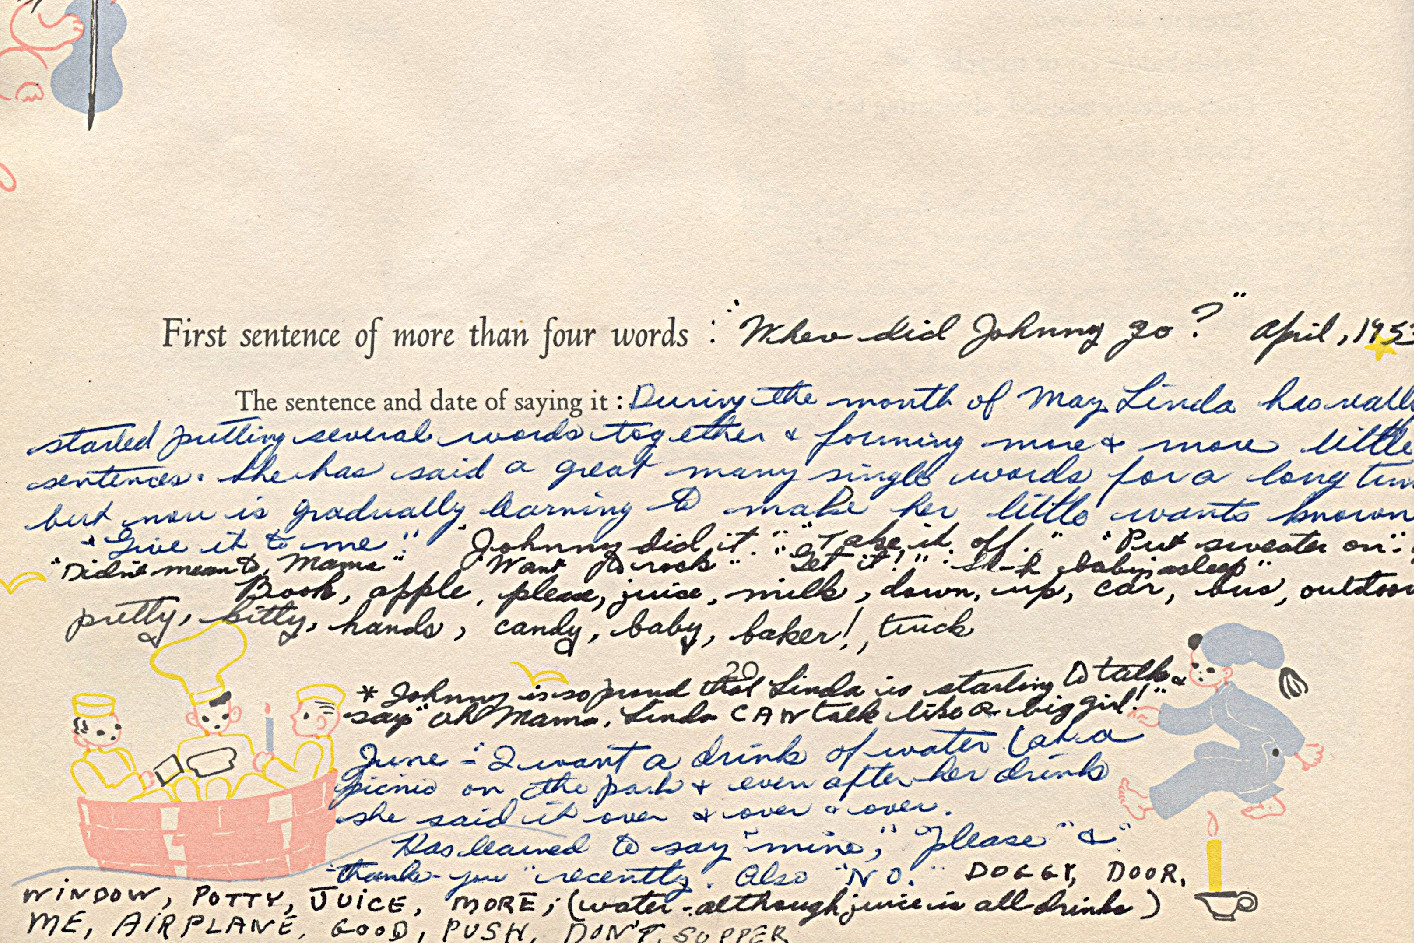 First sentence of more than four words : "Where did Johnny go?" April, 1953
The sentence and date of saying it : During the month of May Linda has really
started putting several words together & forming more & more little
sentences. She has said a great many single words for a long time
but now is gradually learning to make her little wants known
"Give it to me" "Johnny did it." "Take it off." "Put sweater on".
"Didn't mean to, Mama" "Want to rock" "Get it!" "Sh-h baby asleep"
Book, apple, please, juice, milk, down, up, car, bus, outdoor
pretty, bitty, hands, candy, baby, baker!, truck
20
* Johnny is so proud that Linda is starting to talk &
say "oh Mama, Linda CAN talk like a big girl!"
June - "I want a drink of water (at a
picnic on the park & even after her drink
she said it over & over & over.
Has learned to say "mine," "please" & "
thank-you" recently. Also "NO." DOGGY, DOOR,
WINDOW, POTTY, JUICE, MORE, (water - although juice is all drinks)
ME, AIRPLANE, GOOD, PUSH, DON'T, SUPPER